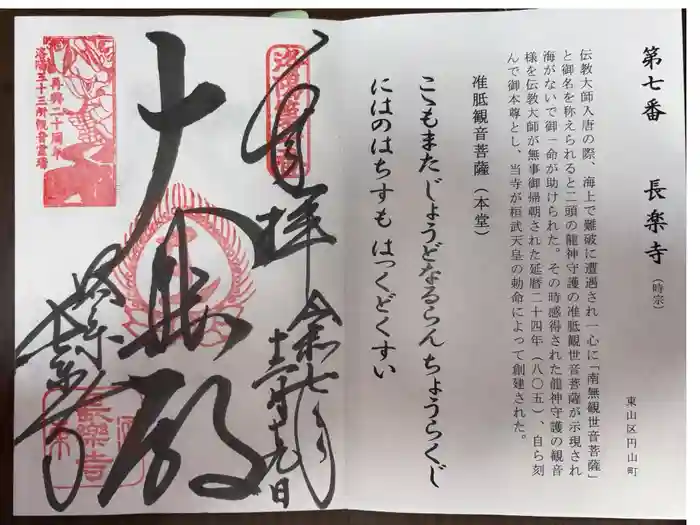 第七番　長楽寺（時宗）
東山区円山町
伝教大師入唐の際、海上で難破に遭遇され一心に「南無観世音菩薩」
と御名を称えられると二頭の龍神守護の准胝観世音菩薩が示現され
海がないで御一命が助けられた。その時感得された龍神守護の観音
様を伝教大師が無事御帰朝された延暦二十四年（八〇五）、自ら刻
んで御本尊とし、当寺が桓武天皇の勅命によって創建された。
准胝観音菩薩（本堂）
こゝもまたじょうどなるらんちょうらくじ
にはのはちすも はっくどくすい
奉拝
令和七年
十二月十九日
大悲殿
時宗
長楽寺
再興二十周年
洛陽三十三所観音霊場
長楽寺